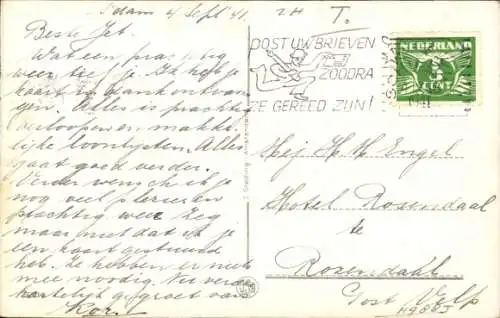 A'dam 4 Sept 41.
Beste Jet.
Wat een prachtig
weer tref je. Ik heb je
kaart in dank ontvan
gen. Alles is prachtig
verloopen en makke
lijke loonlijsten. Alles
gaat goed verder.
Verder wensch ik je
nog veel plezier en
prachtig weer. Zeg
maar niet dat ik je
een kaart gestuurd
heb. Ze hebben er niets
mee noodig. Nu verder
hartelijk gegroet van
Kor.
T.
POST UW BRIEVEN
ZOODRA
ZE GEREED ZIJN!
NEDERLAND
5
CENT
Mej. H. H. Engel
Hotel Rosendaal
te
Rozendaal
Post Velp